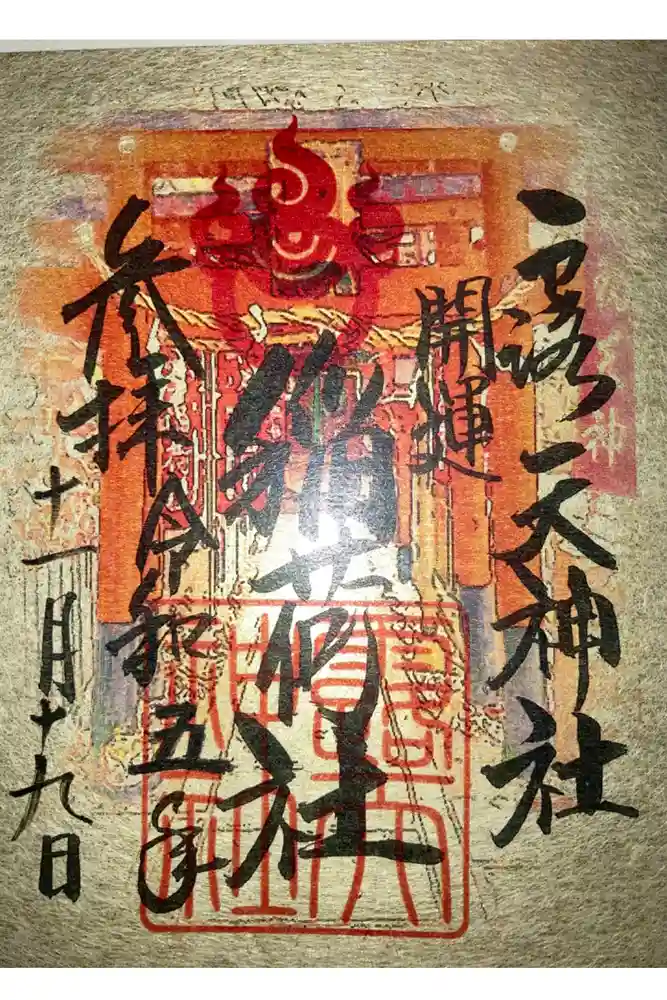 露天神社
開運
稲荷社
参拝令和五年
十一月十九日